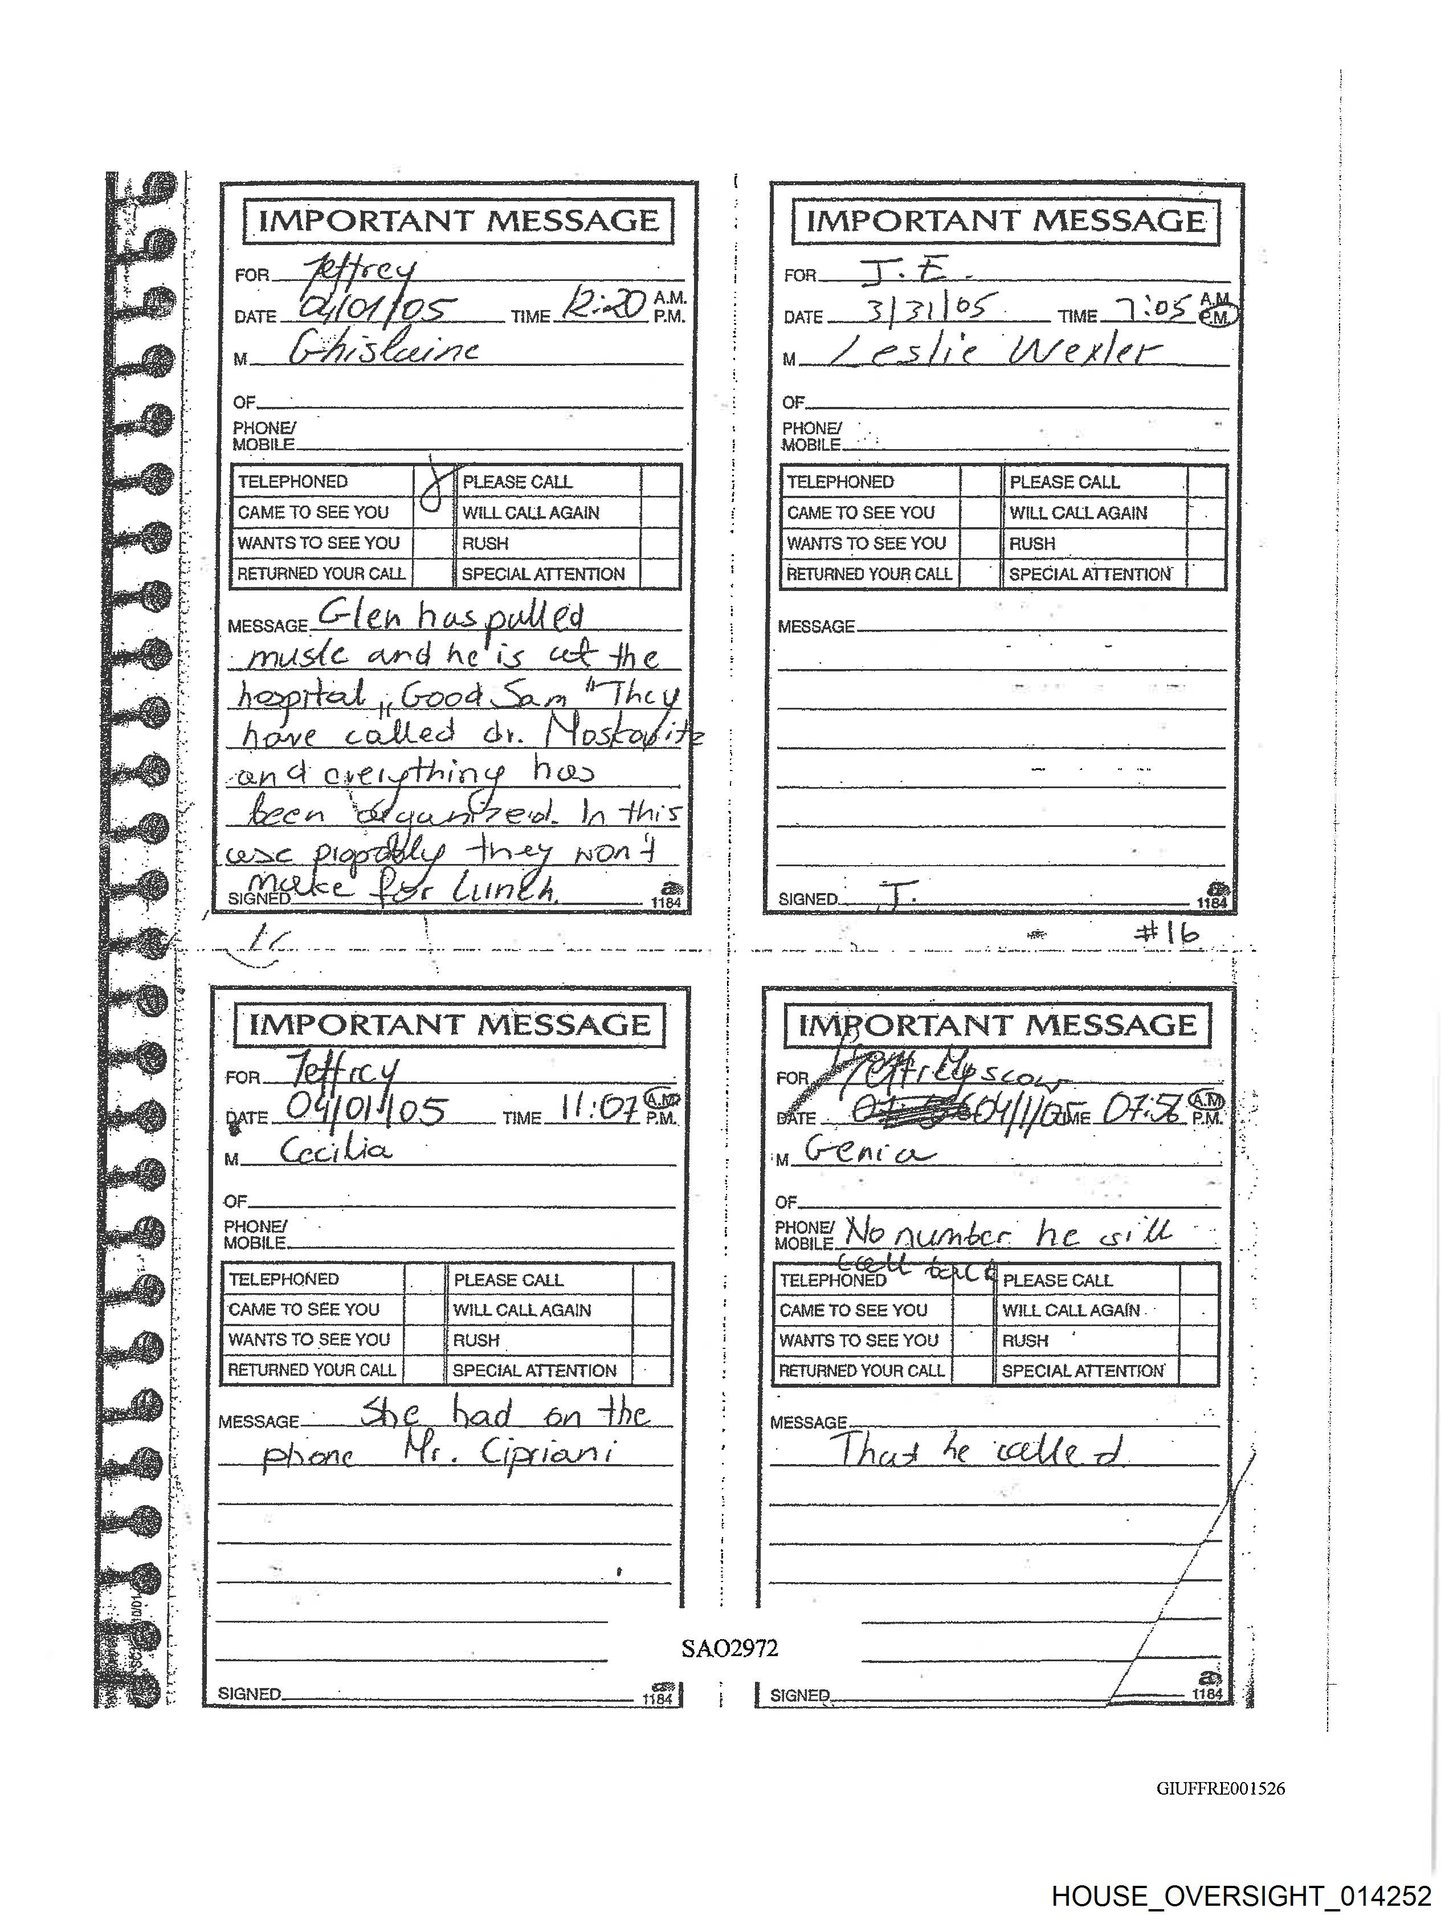 IMPORTANT MESSAGE
FOR Jeffrey
DATE 04/01/05 TIME 12:20 A.M. P.M.
M Ghislaine
OF
PHONE/
MOBILE
TELEPHONED PLEASE CALL
CAME TO SEE YOU WILL CALL AGAIN
WANTS TO SEE YOU RUSH
RETURNED YOUR CALL SPECIAL ATTENTION
MESSAGE Glen has pulled
musle and he is at the
hospital „Good Sam" They
have called dr. Moskovitz
and everything has
been organized. In this
case propobly they won't
make for Lunch.
SIGNED 1184
IMPORTANT MESSAGE
FOR J. E.
DATE 3/31/05 TIME 7:05 A.M. P.M.
M Leslie Wexler
OF
PHONE/
MOBILE
TELEPHONED PLEASE CALL
CAME TO SEE YOU WILL CALL AGAIN
WANTS TO SEE YOU RUSH
RETURNED YOUR CALL SPECIAL ATTENTION
MESSAGE
SIGNED J. 1184
#16
IMPORTANT MESSAGE
FOR Jeffrey
DATE 04/01/05 TIME 11:07 A.M. P.M.
M Cecilia
OF
PHONE/
MOBILE
TELEPHONED PLEASE CALL
CAME TO SEE YOU WILL CALL AGAIN
WANTS TO SEE YOU RUSH
RETURNED YOUR CALL SPECIAL ATTENTION
MESSAGE She had on the
phone Mr. Cipriani
SIGNED 1184
IMPORTANT MESSAGE
FOR
DATE 04/1/05 TIME 07:56 A.M. P.M.
M Genia
OF
PHONE/ No number he will
MOBILE call back
TELEPHONED PLEASE CALL
CAME TO SEE YOU WILL CALL AGAIN
WANTS TO SEE YOU RUSH
RETURNED YOUR CALL SPECIAL ATTENTION
MESSAGE
That he called
SIGNED 1184
SAO2972
GIUFFRE001526
HOUSE_OVERSIGHT_014252